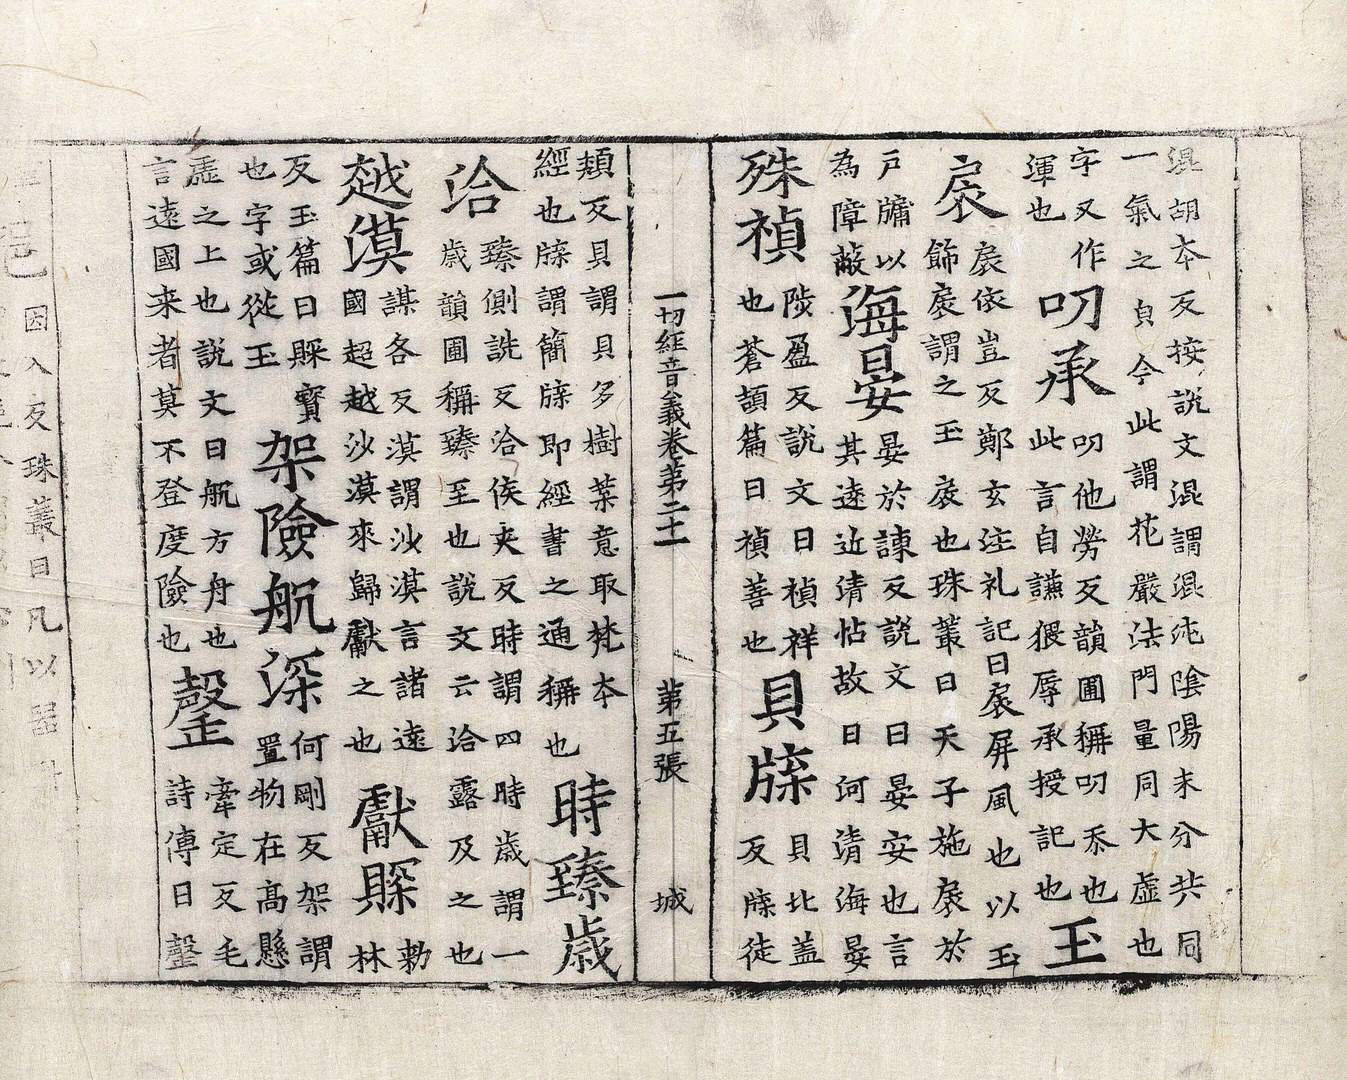 混胡夲反按說文混謂混沌隂陽未分共同
一氣之皃今此謂花嚴法門量同大虛也
字又作
渾也
叨承
叨他勞反韻圃稱叨忝也
此言自謙猥辱承授記也
玉
扆
扆依豈反鄭玄注礼記曰扆屏風也以玉
飾扆謂之玉扆也珠叢曰天子施扆於
戶牖以
為障蔽
海晏
晏於諫反說文曰晏安也言
其遠近清怗故曰河清海晏
殊禎
陟盈反說文曰禎祥
也蒼頡篇曰禎善也
貝牒
貝比盖
反牒徒
一切經音義卷第二十一 第五張 城
頰反貝謂貝多樹葉意取梵夲
經也牒謂簡牒即經書之通稱也
時臻歲
洽
臻側詵反洽侯夾反時謂四時歲謂一
歲韻圃稱臻至也說文云洽露及之也
越漠
謀各反漠謂沙漠言諸遠
國超越沙漠來歸獻之也
獻賝
勅
林
反玉篇曰賝寳
也字或從玉
架險航深
何剛反架謂
置物在高懸
虛之上也說文曰航方舟也
言遠國来者莫不登度險也
罄
牽定反毛
詩傳曰罄
因入反珠叢曰凡以器